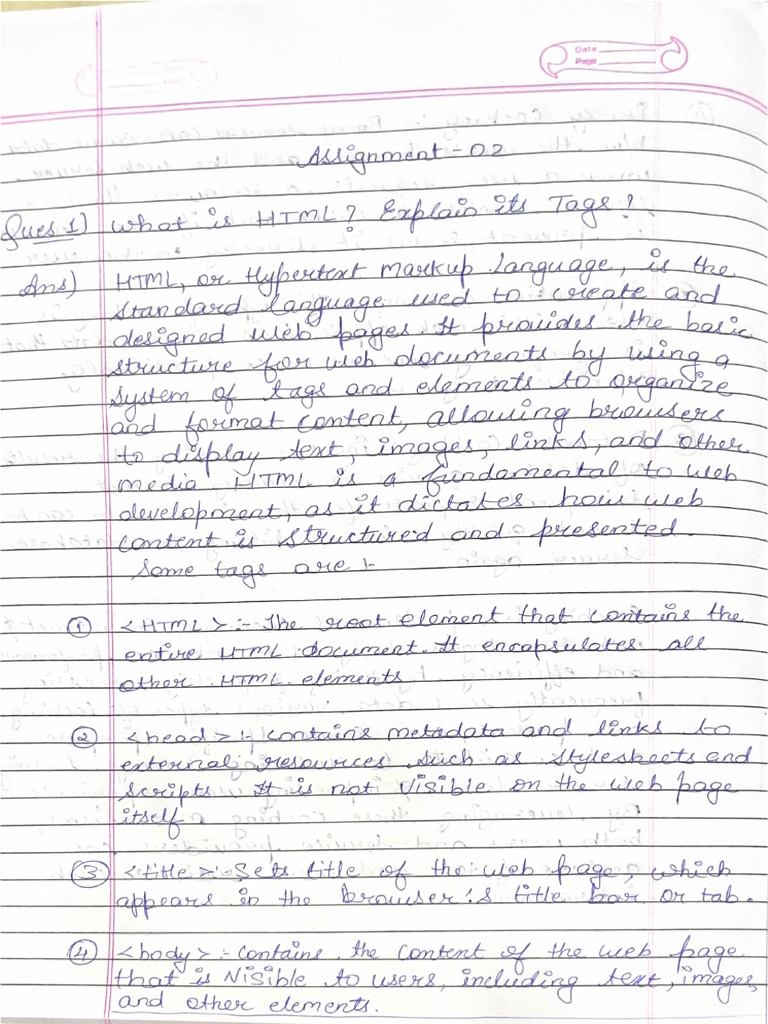 Data
Page
Assignment - 02
Ques 1) What is HTML? Explain its Tags?
Ans) HTML, or Hypertext Markup Language, is the
standard language used to create and
designed web pages. It provides the basic
structure for web documents by using a
system of tags and elements to organize
and format content, allowing browsers
to display text, images, links, and other
media HTML is a fundamental to web
development, as it dictates how web
content is structured and presented.
Some tags are :-
① <HTML> :- The root element that contains the
entire HTML document. It encapsulates all
other HTML elements
② <head> :- contains metadata and links to
external resources such as stylesheets and
scripts. It is not visible on the web page
itself.
③ <title> :- Sets title of the web page, which
appears in the browser's title bar or tab.
④ <body> :- contains the content of the web page
that is visible to users, including text, images
and other elements.